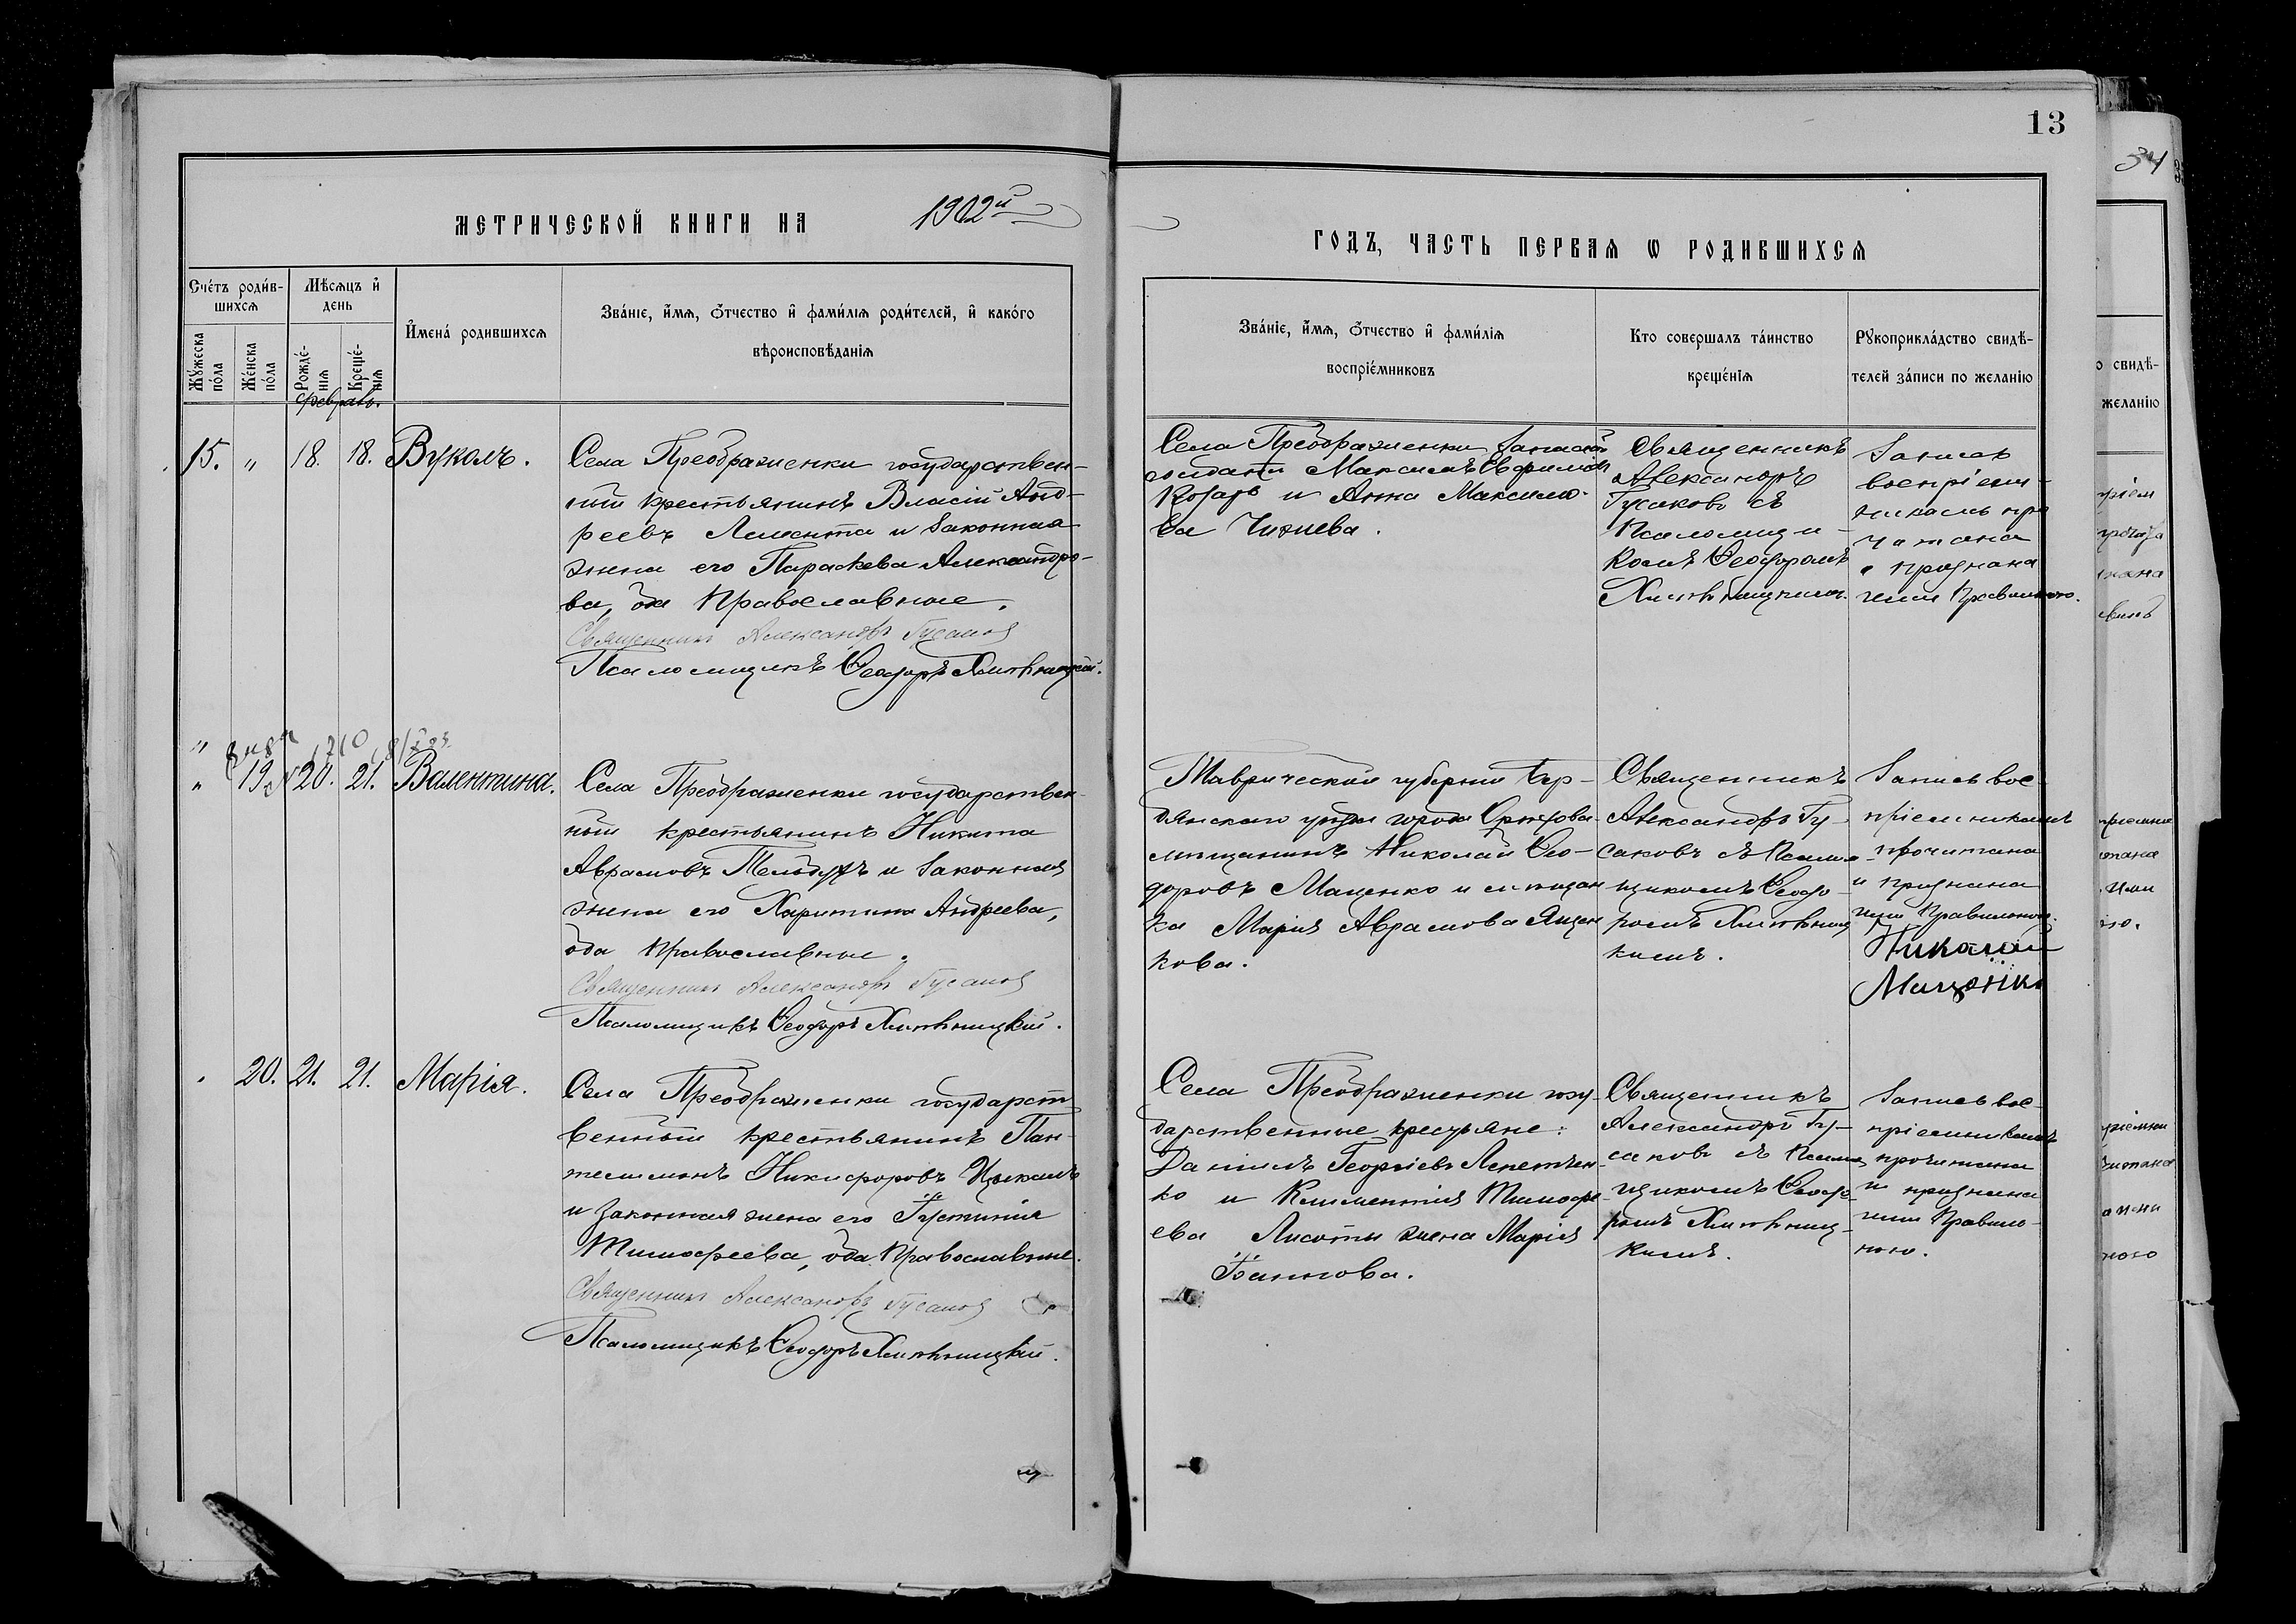 13
МЕТРИЧЕСКОЙ КНИГИ НА 1902й
ГОДЪ, ЧАСТЬ ПЕРВАЯ Ѡ РОДИВШИХСЯ
Сче́тъ роди́в-
шихся
Мѣсяцъ и҆
день
И҆мена̀ родившихся
Зва́нїе, и҆́мя, ѻ҆́тчество и҆ фами́лїя роди́телей, и҆ како́гѡ
вѣроисповѣ́данїя
Мꙋ́жеска
по́ла
Же́нска
по́ла
Рожде́-
нїя
Креще́-
нїя
Февраль.
Зва́нїе, и҆́мя, ѻ҆́тчество и҆ фами́лїя
воспрїе́мниковъ
Кто совершалъ та́инство
креще́нїя
Рꙋкоприкла́дство свидѣ́-
телей за́писи по желанїю
15. " 18. 18. Вуколъ.
Села Преображенки государствен-
ный крестьянинъ Власій Анд-
реевъ и законная
жена его Параскева Александро-
ва, оба Православные.
Священникъ Александръ Гусаковъ
Псаломщикъ Ѳеодоръ
Села Преображенки запасный
Максимъ
Козарь и Анна Максимо-
ва Чижева.
Священникъ
Александръ
Гусаковъ съ
Псаломщи-
комъ Ѳеодоромъ
Запись
воспріем-
никамъ про
читана
и признана
ими Правильною.
" 19. 20. 21. Валентина.
Села Преображенки государствен-
ный крестьянинъ Никита
Авраамовъ и законная
жена его Харитина Андреева,
оба Православные.
Священникъ Александръ Гусаковъ
Псаломщикъ Ѳеодоръ
Таврической губерніи Бер-
дянскаго уѣзда города Орѣхова
мѣщанинъ Николай Ѳео-
доровъ Маценко и мѣщан
ка Марія Авраамова Яцен
кова.
Священникъ
Александръ Гу-
саковъ съ Псалом
щикомъ Ѳеодо-
ромъ
кимъ.
Запись вос-
пріемникамъ
прочитана
и признана
ими Правильною.
Николай
Маценко
20. 21. 21. Марія.
Села Преображенки государст
венный крестьянинъ Пан-
телимонъ Никифоровъ
и законная жена его Іустинія
Тимофеева, оба Православные.
Священникъ Александръ Гусаковъ
Псаломщикъ Ѳеодоръ
Села Преображенки госу-
дарственные крестьяне:
Даніилъ Георгіевъ Лепетчен-
ко и Климентія Тимофе
ева Лисоты жена Марія
Священникъ
Александръ Гу-
саковъ съ Псалом
щикомъ Ѳеодо-
ромъ
кимъ.
Запись вос-
пріемникамъ
прочитана
и признана
ими Правиль-
ною.
34
о свидѣ-
желанїю